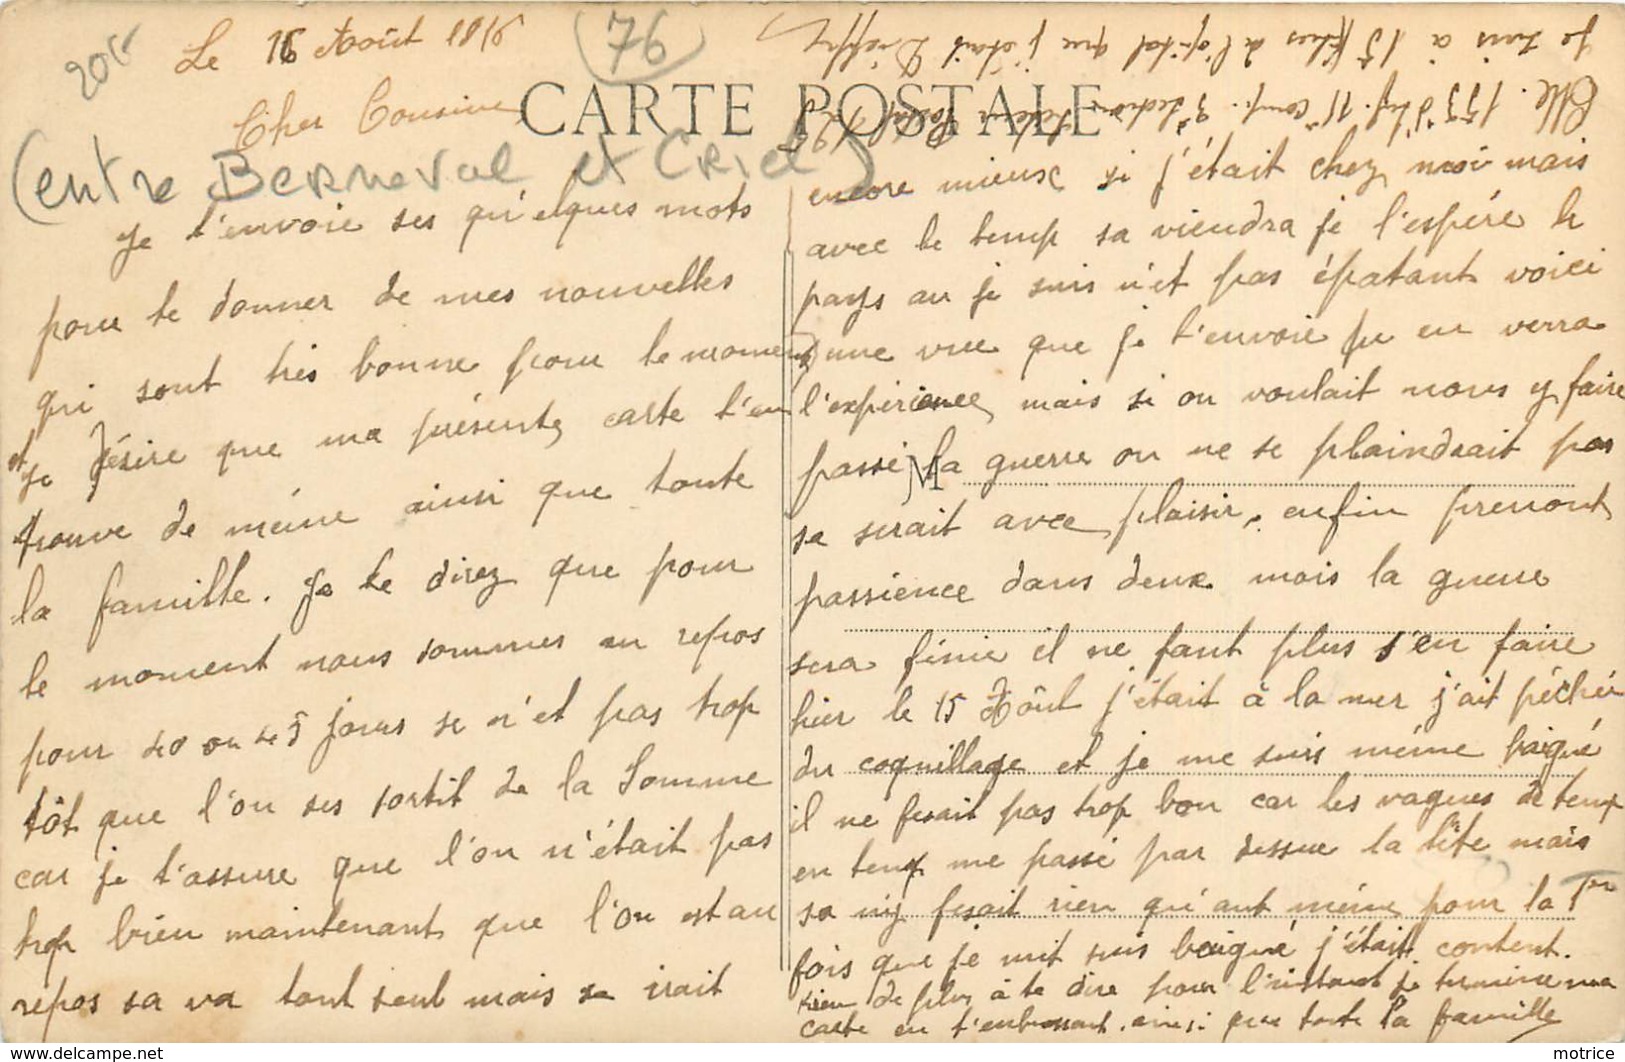 Le 16 Août 1916
76
Cher Cousine
CARTE POSTALE
(entre Berneval et Criel)
Je t'envoie ses qu'elques mots
pour te donner de mes nouvelles
qui sont très bonne pour le moment
et je désire que ma présente carte t'en
trouve de même ainsi que toute
la famille. Je te direz que pour
le moment nous sommes au repos
pour 40 ou 45 jours se n'et pas trop
tôt que l'on ses sortit de la Somme
car je t'assure que l'on n'était pas
trop bien maintenant que l'on est au
repos sa va tout seul mais sa irait
encore mieux si j'était chez moi mais
avec le temp sa viendra je l'espére le
pays au je suis n'et pas épatant voici
une vue que je t'envoie tu en verra
l'expérience mais si on voulait nous y faire
passé la guerre on ne se plaindrait pas
M
sa serait avec plaisir, enfin prenont
passience dans deux mois la guerre
sera finie il ne faut plus s'en faire
hier le 15 Août j'était à la mer j'ait péchér
du coquillage et je me suis même baigné
il ne fesait pas trop bon car les vagues de temp
en temp me passé par dessue la tête mais
sa n'y fesait rien qu'ant même pour la 1er
fois que je mit suis baigné j'était content.
rien de plus à te dire pour l'instant je termine ma
carte en t'embrassant ainsi que toute la famille
Je suis à 15 Klms de l'opital que j'était Dieppe
153 d'Inf. 11e comp. 3e Section Secteur Postal 125
motrice